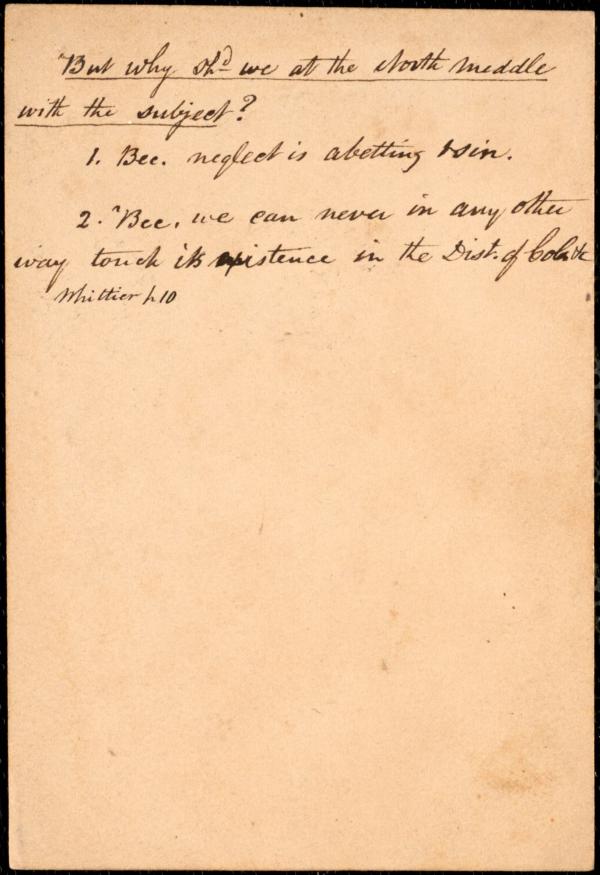 But why shd we at the North meddle
with the subject?
1. Bec. neglect is abetting sin.
2. Bec. we can never in any other
way touch its existence in the Dist. of Cola &c
Whittier p 10